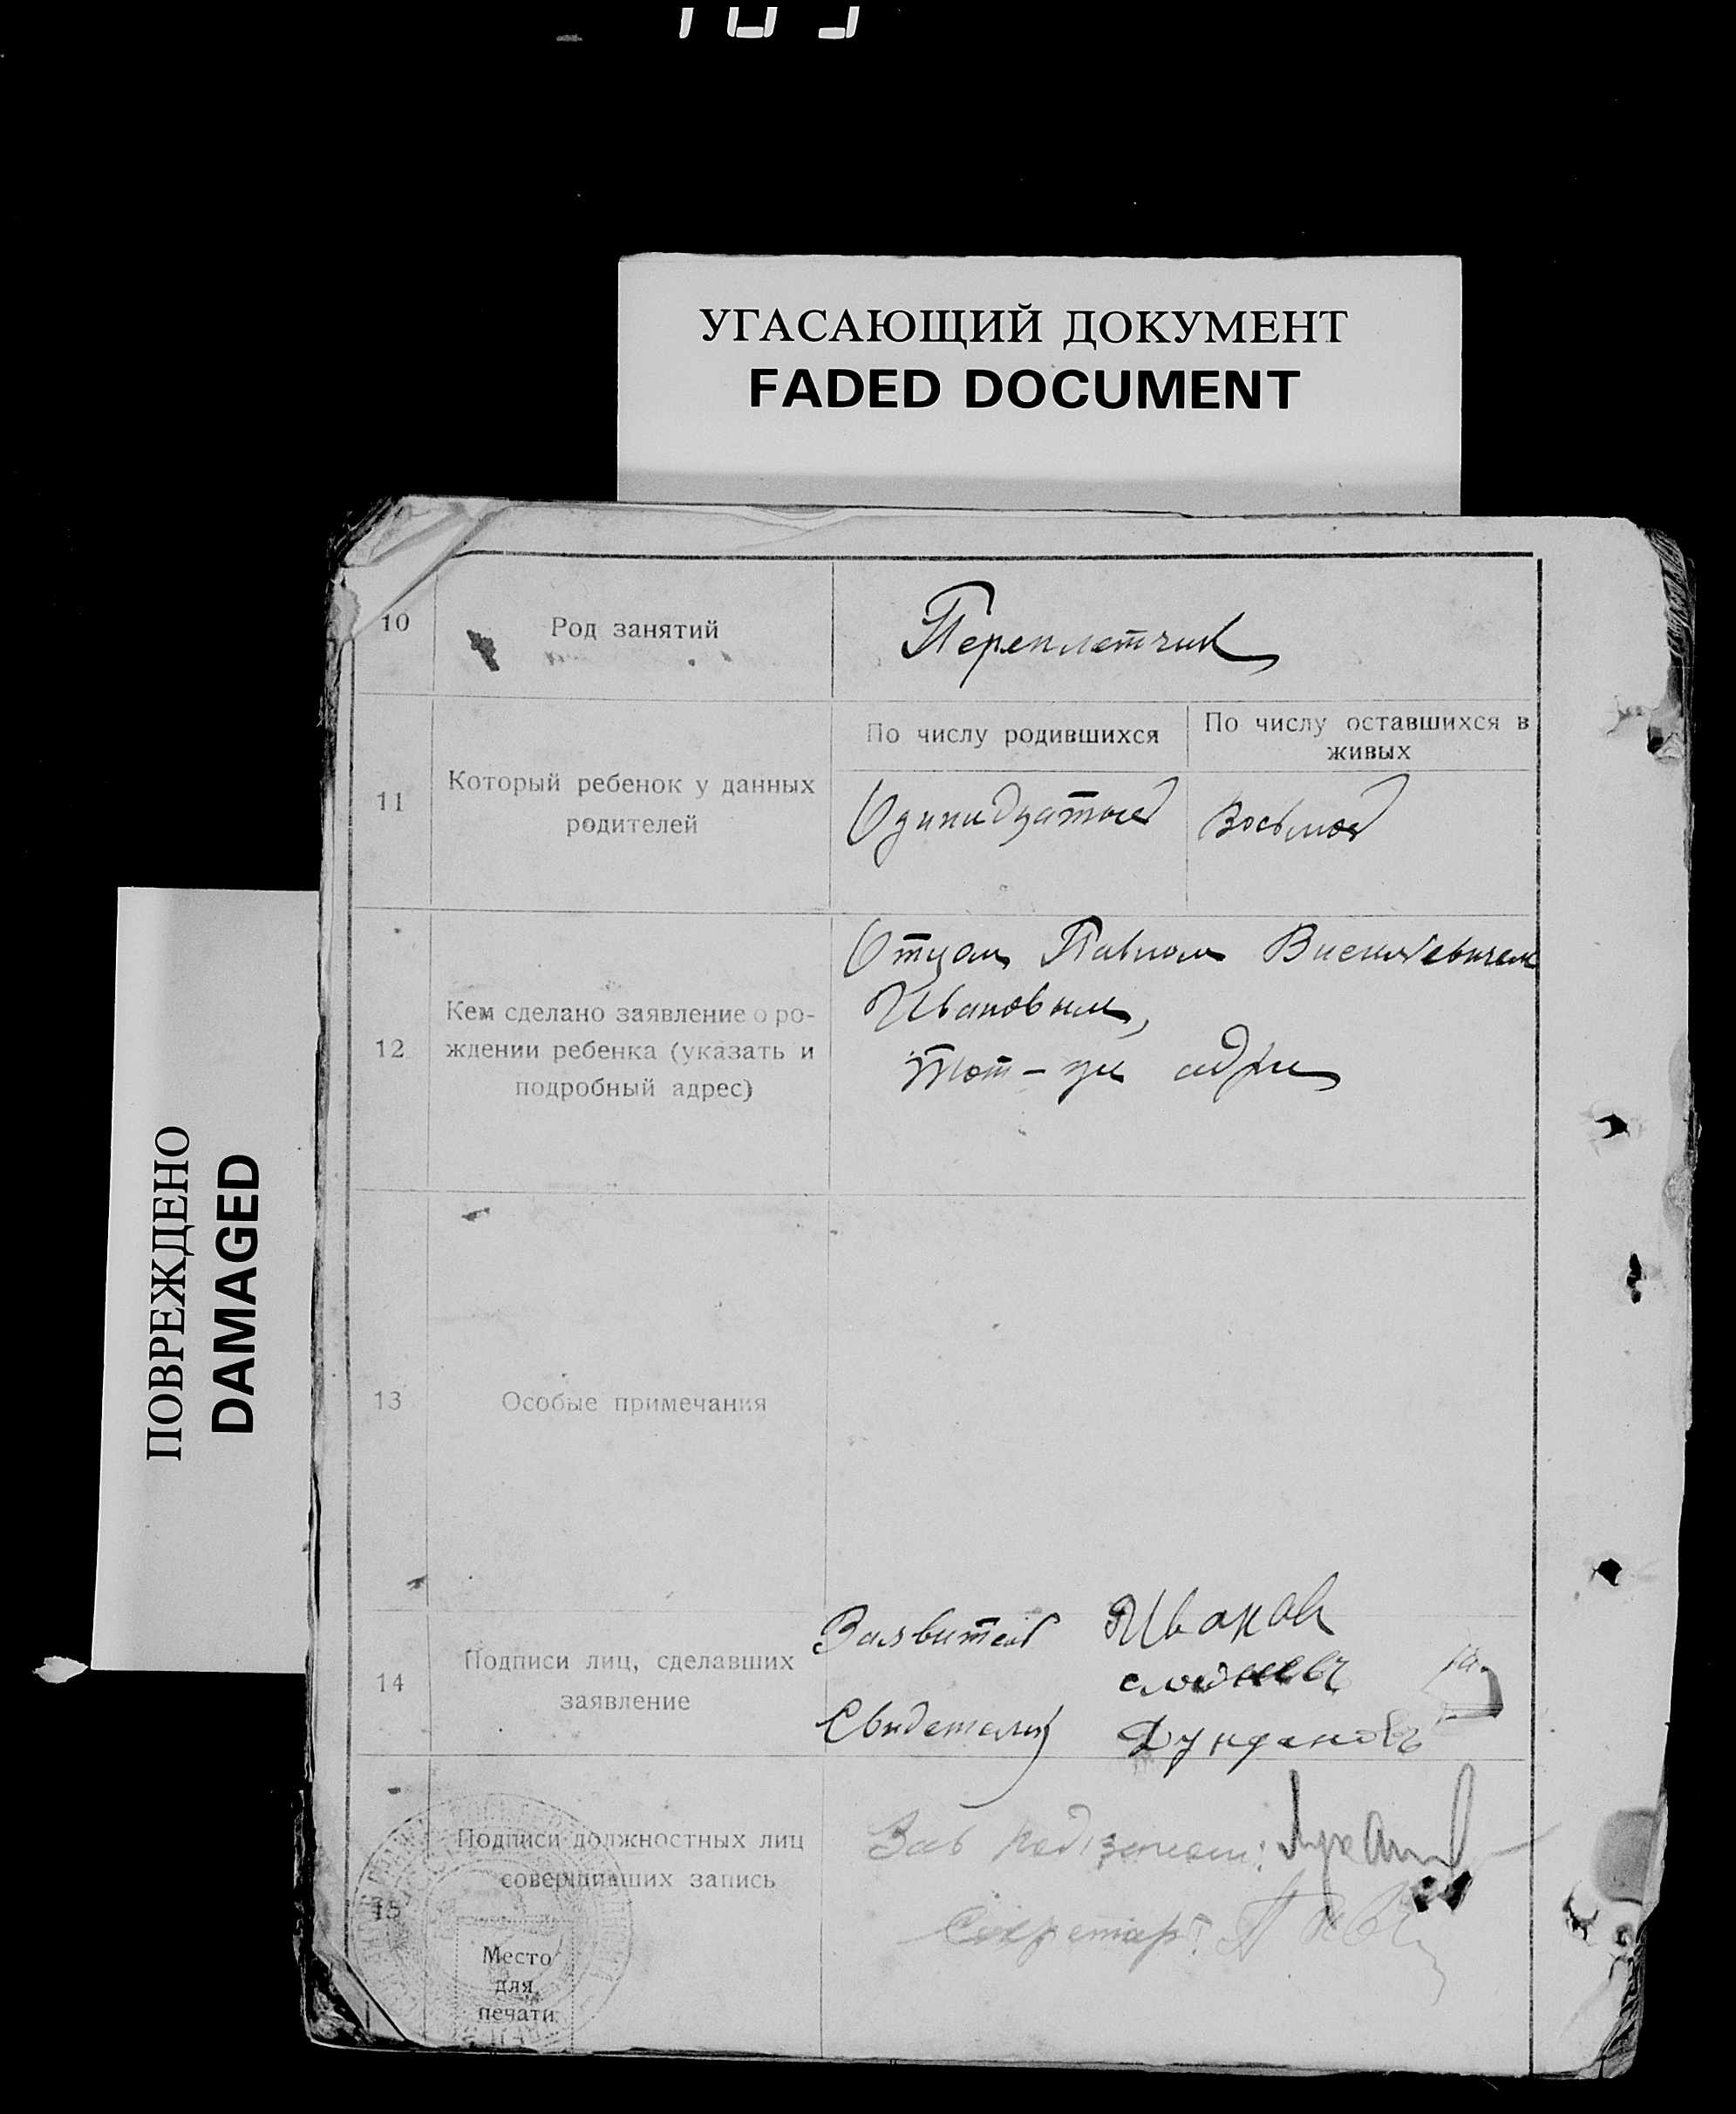 УГАСАЮЩИЙ ДОКУМЕНТ
FADED DOCUMENT
ПОВРЕЖДЕНО
DAMAGED
10
Род занятий
Переплетчик
11
Который ребенок у данных
родителей
По числу родившихся
По числу оставшихся в
живых
Одинидцатый
Восьмой
12
Кем сделано заявление о ро-
ждении ребенка (указать и
подробный адрес)
Отцом Павлом Васильевичем
Ивановым,
тот-же адрес
13
Особые примечания
14
Подписи лиц, сделавших
заявление
Заявитель Иванов
Свидетели
15
Подписи должностных лиц
совершивших запись
Место
для
печати
Зав
Секретарь